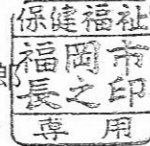 保健福祉
福岡市
長之印
専用
郎